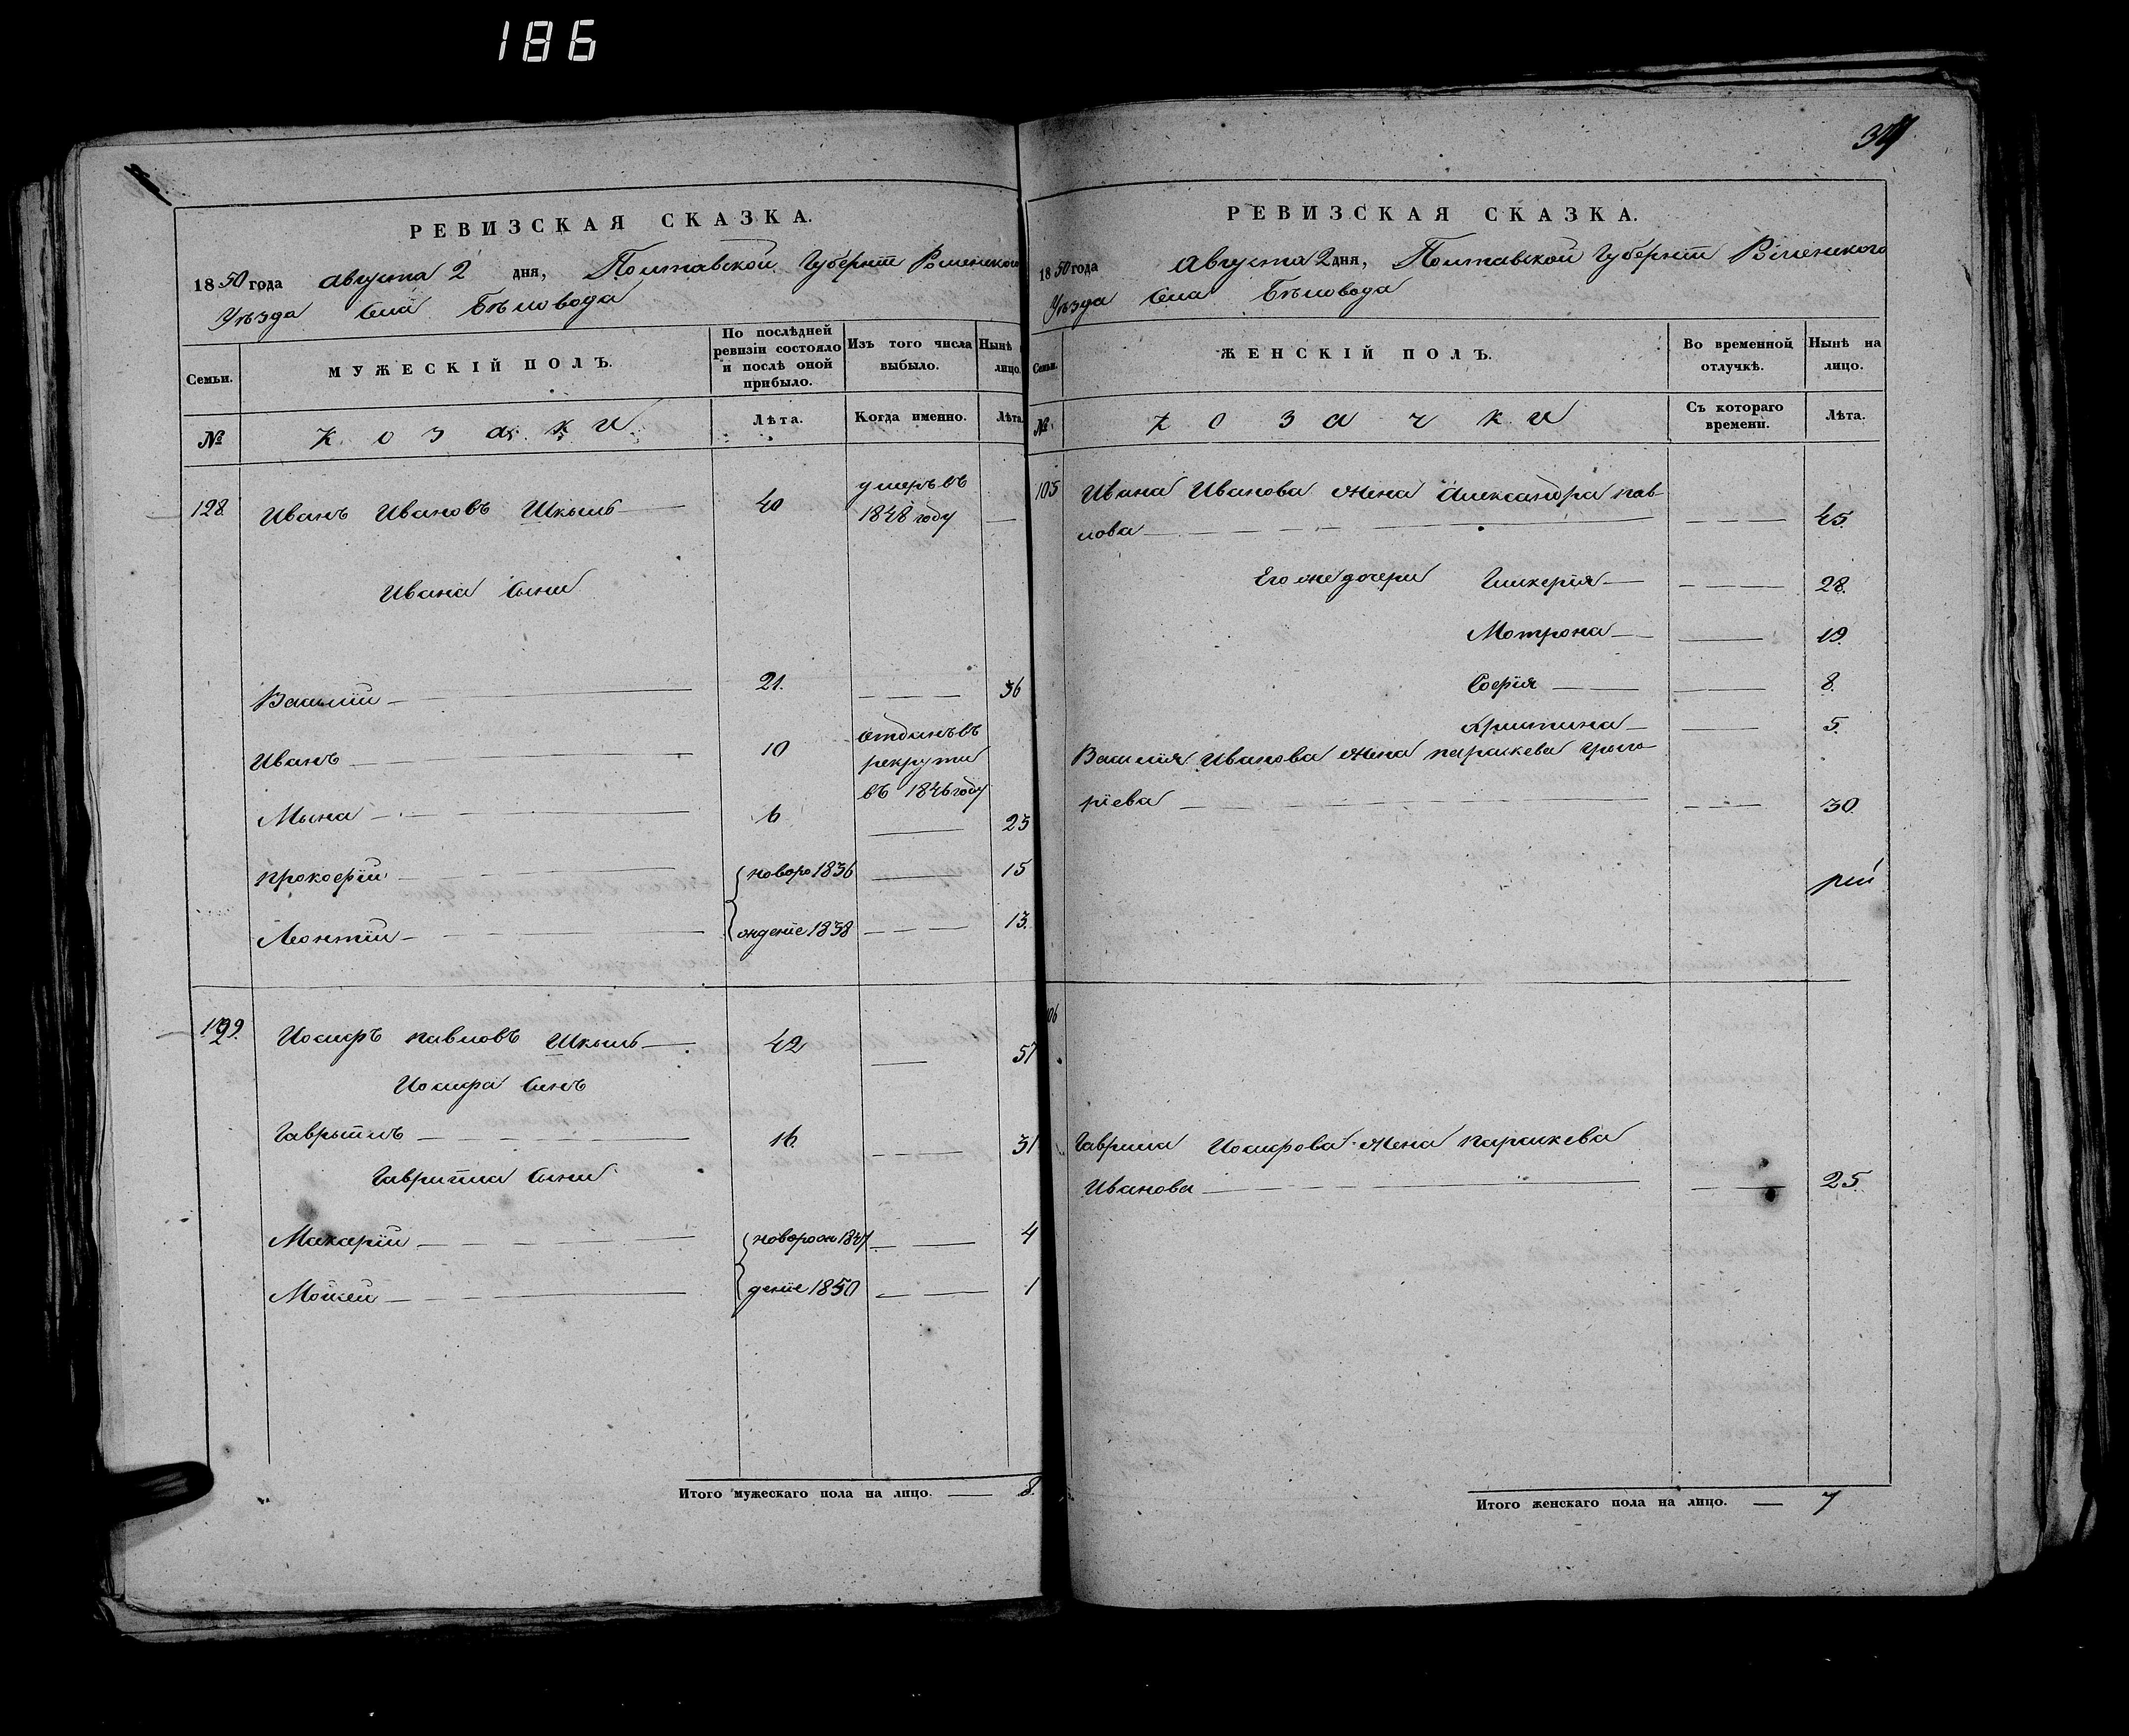 186
РЕВИЗСКАЯ СКАЗКА.
1850 года августа 2 дня, Полтавской Губерніи Роменского
Уѣзда Села Бѣловода
Семьи.
МУЖЕСКІЙ ПОЛЪ.
По послѣдней ревизіи состояло и послѣ оной прибыло.
Изъ того числа выбыло.
Нынѣ лицо.
№
козаки
Лѣта.
Когда именно.
Лѣта.
128 Иванъ Ивановъ Шкыль 40 умеръ въ 1848 году
Ивана Сыни
Василій 21. 36
Иванъ 10 отданъ въ рекруты въ 1846 году
Мына 6 23
Прокофій новоро 1836 15
Леонтій ждение 1838 13.
129. Иосифъ Павловъ Шкыль 42 57
Иосифа Синъ
Гаврыилъ 16. 31
Гавриила Сыни
Макарій новорож 1847 4
Мойсей дение 1850 1
Итого мужескаго пола на лицо. 8.
РЕВИЗСКАЯ СКАЗКА.
1850 года августа 2 дня, Полтавской Губерніи Роменского
Уѣзда Села Бѣловода
Семьи.
ЖЕНСКІЙ ПОЛЪ.
Во временной отлучкѣ.
Нынѣ на лицо.
№
козачки
Съ котораго времени.
Лѣта.
105 Ивана Иванова жена Александра Пав-
лова 45.
Его же дочери Гликерія 28.
Мотрона 19.
Софія 8.
Христина 5.
Василія Иванова жена Параскева Григо-
ріева 30.
106
Гаврила Иосифова жена Параскева
Иванова 25.
Итого женскаго пола на лицо. 7